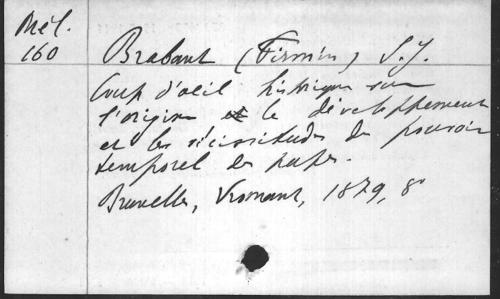 Mél.
160
Brabant (Firmin) S.J.
Coup d'oeil historique sur
l'origine et le développement
et les vicissitudes du pouvoir
temporel des papes.
Bruxelles, Vromant, 1879, 8°